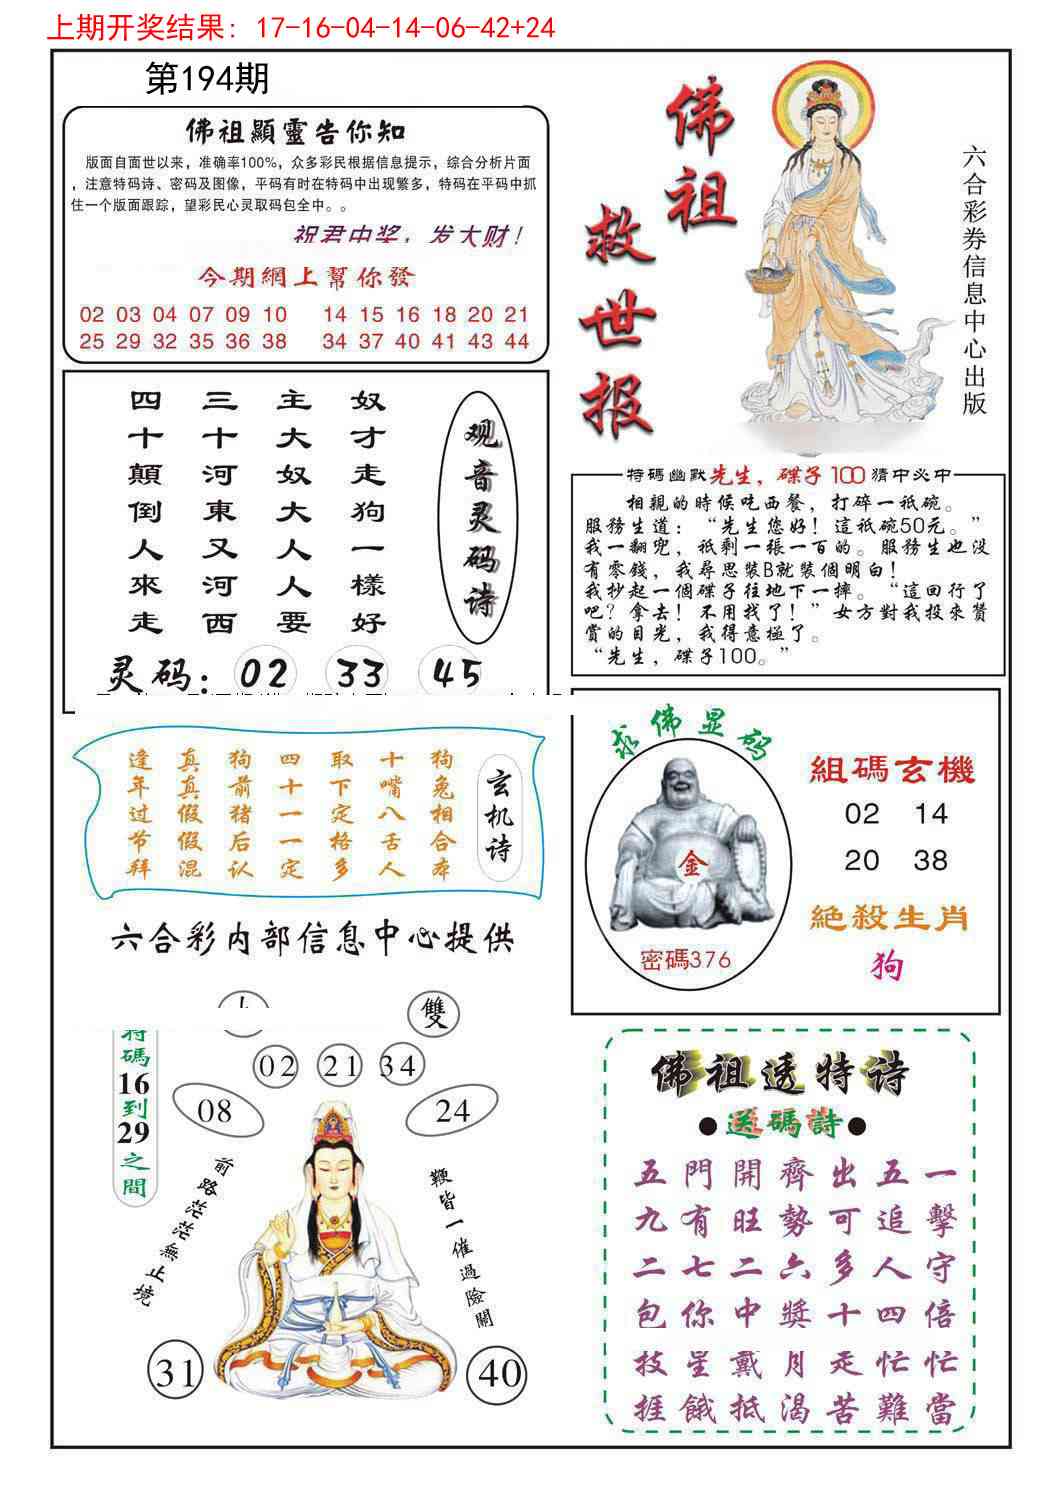 上期开奖结果：17-16-04-14-06-42+24
第194期
佛祖顯靈告你知
版面自面世以来，准确率100%，众多彩民根据信息提示，综合分析片面
，注意特码诗、密码及图像，平码有时在特码中出现繁多，特码在平码中抓
住一个版面跟踪，望彩民心灵取码包全中。。
祝君中奖，发大财！
今期網上幫你發
02 03 04 07 09 10 14 15 16 18 20 21
25 29 32 35 36 38 34 37 40 41 43 44
佛祖
救世报
六合彩券信息中心出版
观音灵码诗
奴才走狗一樣好
主大奴大人人要
三十河東又河西
四十顛倒人來走
灵码：02 33 45
特碼幽默先生，碟子100猜中必中
相親的時候吃西餐，打碎一衹碗。
服務生道：“先生您好！這衹碗50元。”
我一翻兜，衹剩一張一百的。服務生也没
有零錢，我尋思裝B就裝個明白！
我抄起一個碟子往地下一摔。“這回行了
吧？拿去！不用找了！”女方對我投來贊
賞的目光，我得意極了。
“先生，碟子100。”
玄机诗
狗兔相合本
十嘴八舌人
取下定格多
四十一一定
狗前猪后认
真真假假混
逢年过节拜
六合彩内部信息中心提供
求佛显码
金
密碼376
組碼玄機
02 14
20 38
絕殺生肖
狗
雙
02 21 34
08 24
特碼16到29之間
前路茫茫無止境
鞭皆一催過險關
31 40
佛祖透特诗
●送碼詩●
五門開齊出五一
九有旺勢可追擊
二七二六多人守
包你中獎十四倍
技星戴月走忙忙
捱餓抵渴苦難當